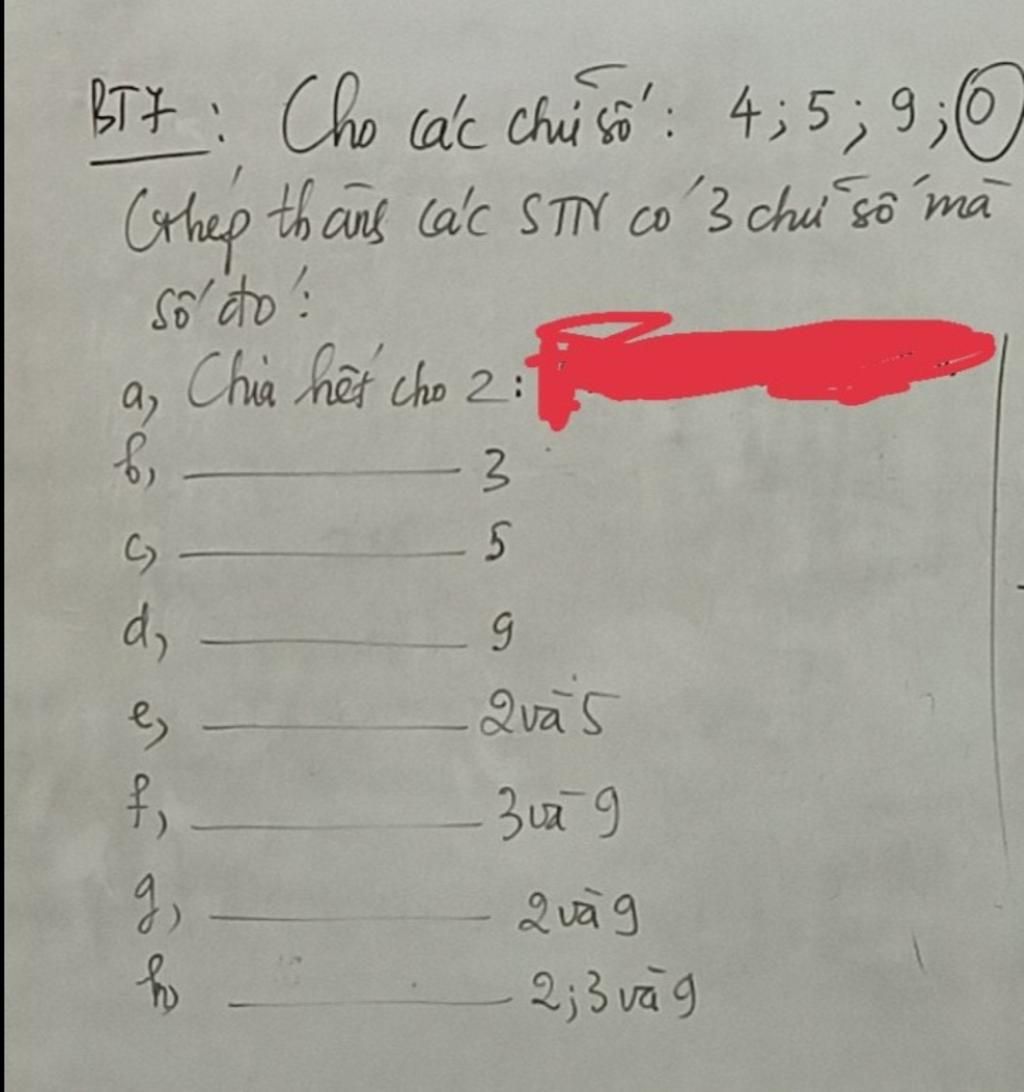 BT7: Cho các chữ số: 4; 5; 9; 0
Ghép thành các STN có 3 chữ số mà
số đó:
a, Chia hết cho 2:
b, ____ 3
c, ____ 5
d, ____ 9
e, ____ 2 và 5
f, ____ 3 và 9
g, ____ 2 và 9
h, ____ 2; 3 và 9